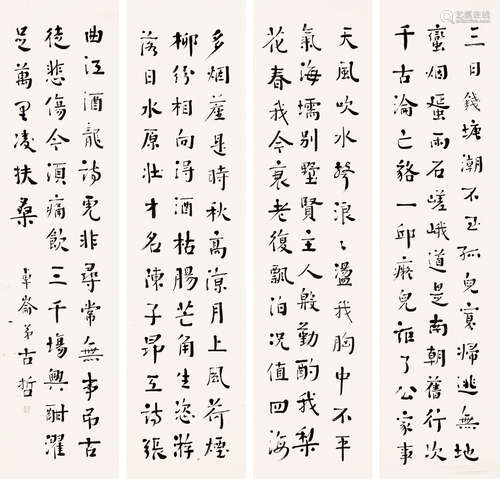 三日錢塘潮不至孤兒寡婦逃無地
蠻烟蜑雨石嵯峨道是南朝舊行次
千古淪亡貉一邱癡兒誰了公家事
天風吹水聲浪〻盪我胸中不平
氣海壖別墅賢主人殷勤酌我梨
花春我今衰老復飄泊況值四海
多烟塵是時秋高涼月上風荷煙
柳紛相向得酒枯腸芒角生恣游
落日水原壯才名陳子昂工詩張
曲江酒龍詩虎非尋常無事弔古
徒悲傷今須痛飲三千場興酣濯
足萬里凌扶桑
弟古哲